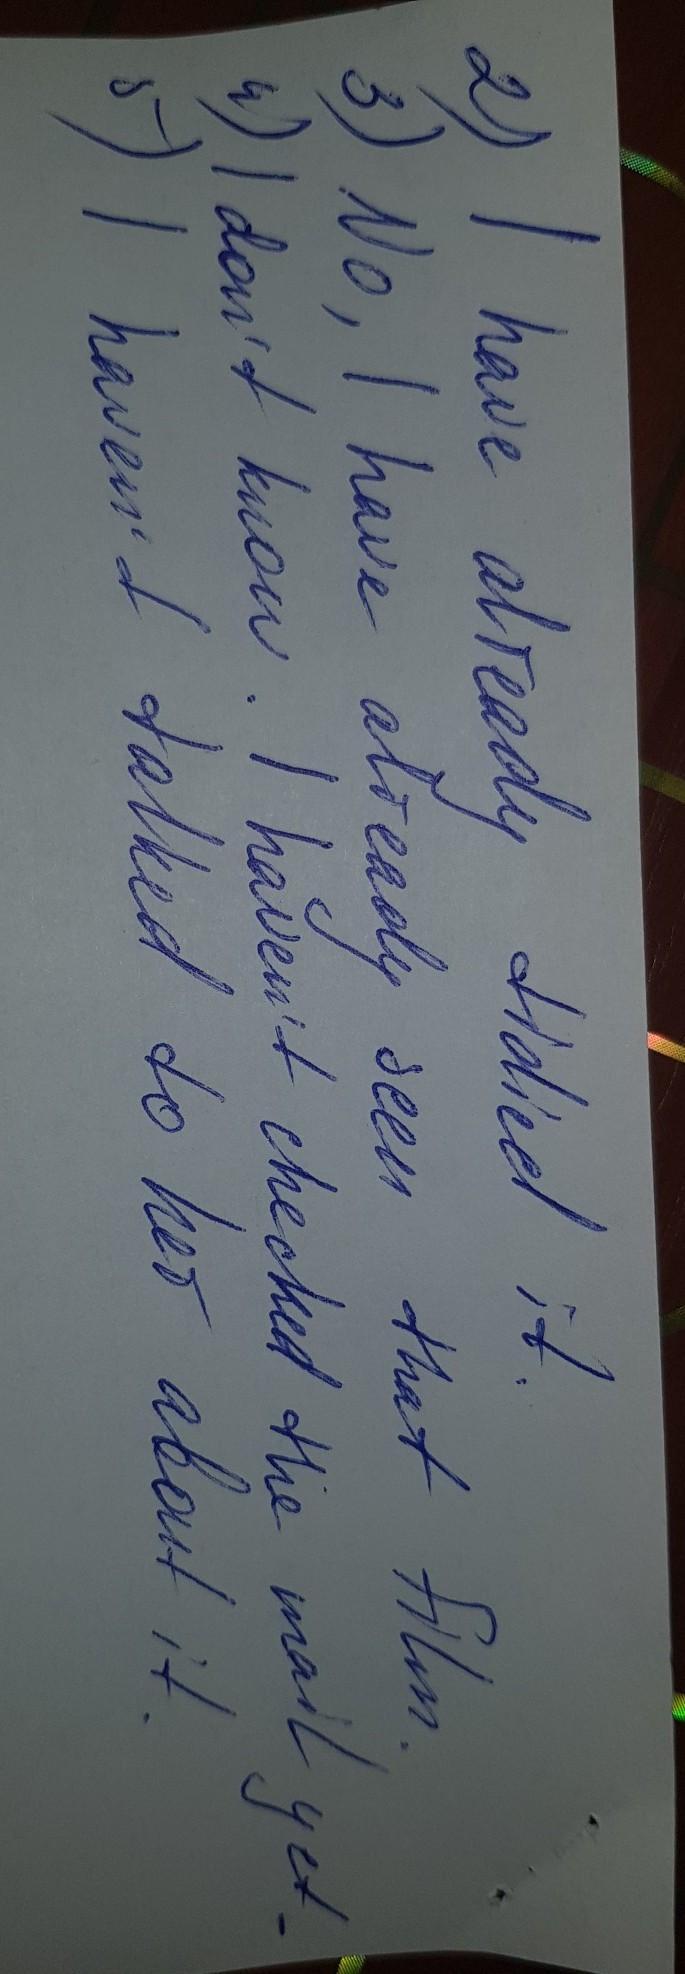 2) I have already tidied it.
3) No, I have already seen that film.
4) I don't know. I haven't checked the mail yet.
5) I haven't talked to her about it.